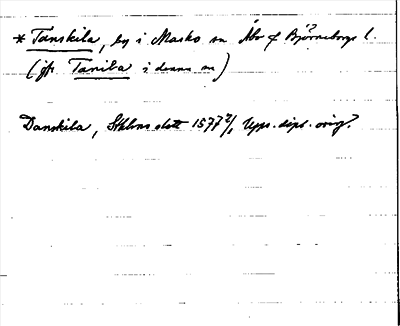 * Tanskila, by i Masko sn Åbo & Björneborgs l.
(jfr Tanila i denna sn)
Danskila, Sthlms slott 1577 2/1 Upps. dipl. orig?